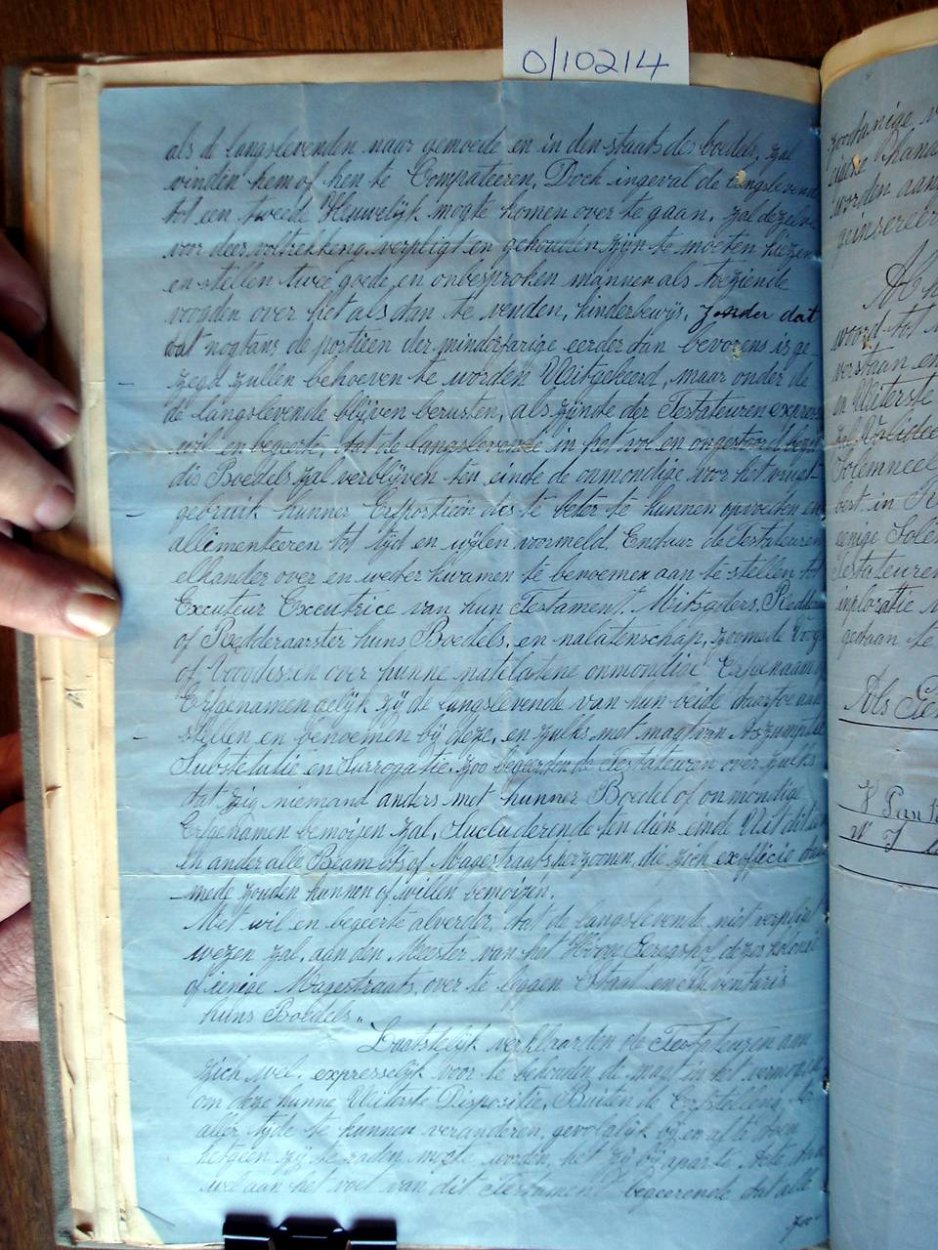 0/10214
als de langslevenden naar gemoede en in den staat des boedels, zal
vinden hem of hen te Competeeren. Doch ingeval de langslevende
tot een tweede Heuwelijk mogte komen over te gaan, zal dezelve
voor deer voltrekking verpligt en gehouden zijn te moeten kiezen
en stellen twee goede en onbesproken mannen als toeziende
voogden over het als dan te venden, kinderbewijs, zonder dat
dat nogtans de portieen der minderjarige eerder dan bevorens is ge-
zegd zullen behoeven te worden Uitgekeerd, maar onder de
de langslevende blijven berusten, als zijnde der Testateuren expresse
wil en begeerte, dat de langslevende in het vol en ongestoord bezit
des Boedels zal verblijven ten einde de onmondige voor het vrugt-
gebruik hunner Erfportien des te beter te kunnen opvoeden en
allimenteeren tot tijd en wijlen voormeld. Enduur de Testateuren
elkander over en weder kwamen te benoemen aan te stellen tot
Executeur Executrice van hun Testament. Mitsgaders, Redder
of Redderaarster huns Boedels, en nalatenschap, zoomede Voogd
of Voodissen over hunne natelatene onmondige Erfgenaam of
Erfgenamen gelijk zij de langslevende van hun beide daartoe aan
stellen en benoemen bij deze, en zulks met magt van Aszumptie
Substetutie en Surrogatie. Zoo begeerden de Testateuren over zulks
dat zig niemand anders met hunner Boedel of onmondige
Erfgenamen bemoijen zal, Secluderende ten dien einde Uit dit
en ander alle Beambts of Magestraats perzoonen, die zich exofficio daar
mede zouden kunnen of willen bemoizen.
Met wil en begeerte alverder, dat de langslevende niet verpligt
wezen zal, aan den Meester van het Hooge Geregshof dezes kolonie
of eenige Magestraats, over te leggen Staat en Inventaris
huns Boedels."
Laatstelijk verklaarden de Testateuren aan
zich wel expresselijk voor te behouden de magt en het vermogen
om deze hunne Uiterste Dispositie, Buiten de Erfstelling, te
aller tijde te kunnen veranderen,
hetgeen zij te raden mogte worden, het zij bij aparte Acte dan
wel aan het voet van dit Testament begeerende dat alle
zoo-
zoodanige
worden aan
geinsereerd
woord tot
verstaan en
en Uiterste
Solemneel
eenige Solem
Testateuren
gedaan te
Als Ge